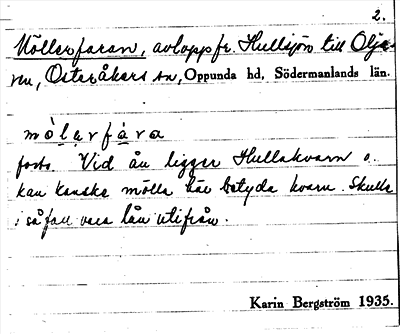 2.
Möllerfaran, avlopp fr. Hullsjön till Olja-
ren, Österåkers sn, Oppunda hd, Södermanlands län.
mȯ́lạrfȧra
forts. Vid ån ligger Hullakvarn o.
kan kanske mölla här betyda kvarn. Skulle
i så fall vara lån utifrån.
Karin Bergström 1935.